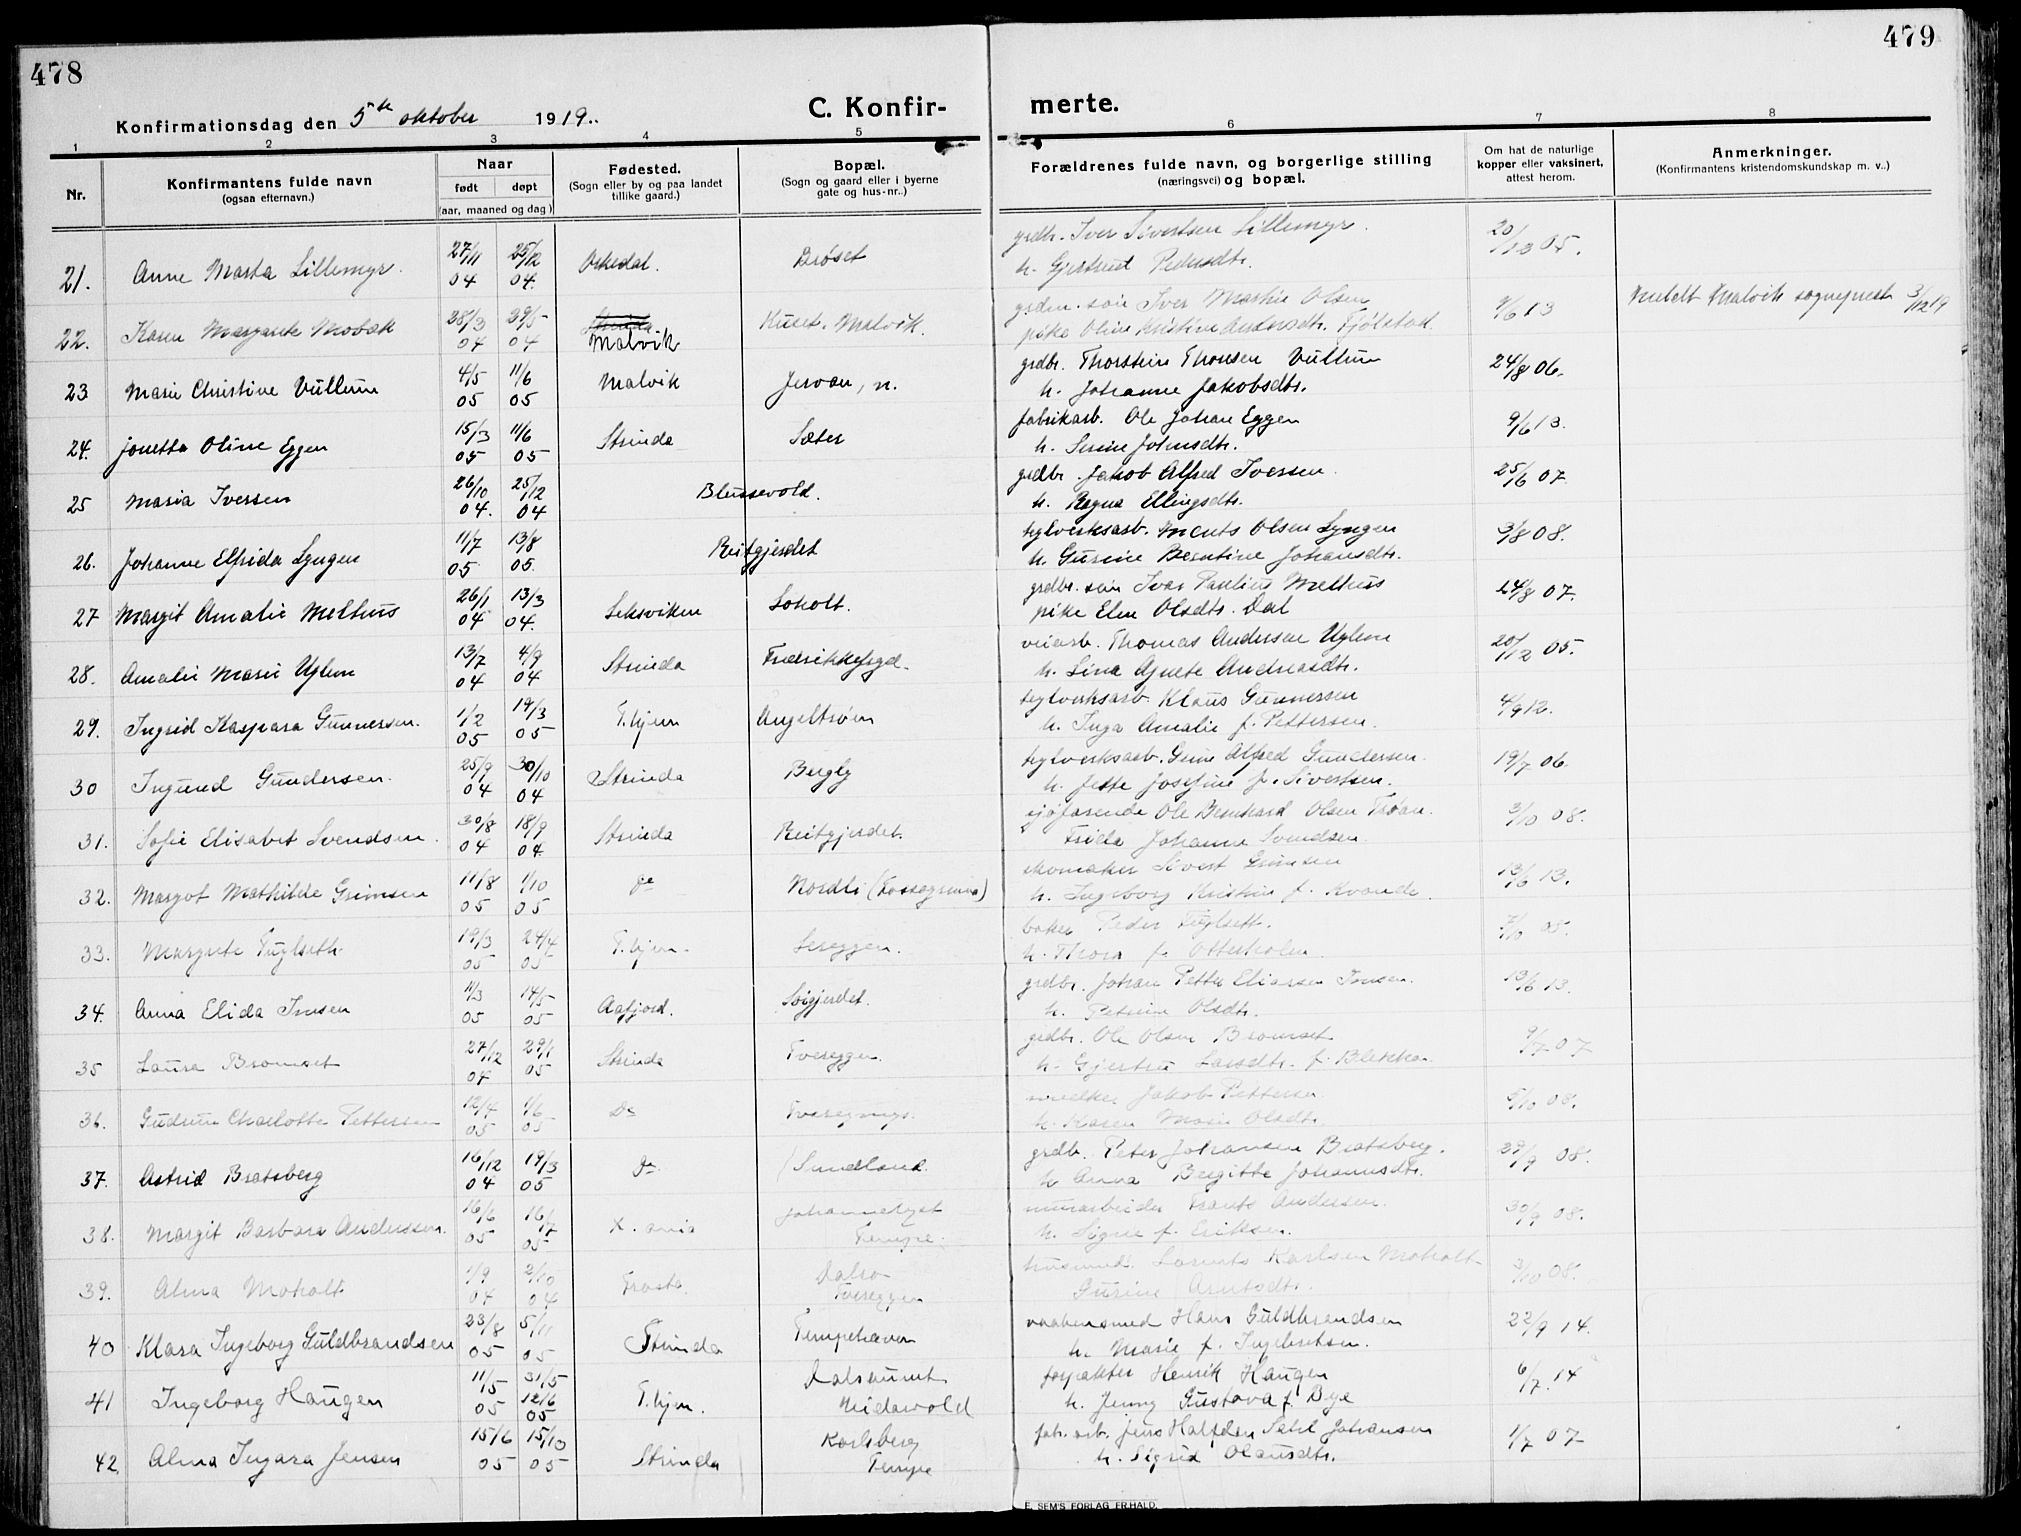 478
479
Konfirmationsdag den 5te oktober 1919.
C. Konfir-
merte.
1 2 3 4 5 6 7 8
Nr.
Konfirmantens fulde navn
(ogsaa efternavn.)
Naar
født døpt
(aar, maaned og dag)
Fødested.
(Sogn eller by og paa landet
tillike gaard.)
Bopæl.
(Sogn og gaard eller i byerne
gate og hus-nr..)
Forældrenes fulde navn, og borgerlige stilling
(næringsvei) og bopæl.
Om hat de naturlige
kopper eller vaksinert,
attest herom.
Anmerkninger.
(Konfirmantens kristendomskundskap m. v..)
21. Anne Marta Lillemyr. 27/11 04 25/12 04. Orkedal. Brøset
grdbr. Iver Sivertsen Lillemyr.
h. Gjertrud Pedersdtr. 20/12 05.
22. Karen Margrete Mobæk 28/3 04 29/5 04 Malvik Malvik
søn Iver Martin Olsen
pike Oline Kristine Andersdtr. Fjølstad 9/6 13 Meldt Malvik sogneprest 3/12 19
23 Marie Christine Vullum 4/5 05 11/6 05 Malvik Jervan, n.
grdbr. Thorstein Thonsen Vullum
h. Johanne Jakobsdtr. 24/8 06.
24. Jonetta Oline Eggen 15/3 05 11/6 05 Strinda Sæter
fabrikarb. Ole Johan Eggen
h. Serine Johnsdtr. 9/6 13.
25 Maria Iversen 26/10 04. 25/12 04 Blussevold.
grdbr. Jakob Alfred Iversen.
h. Ragna Ellingsdtr. 25/6 07.
26. Johanne Elfrida Lyngen 11/7 05 13/8 05. Reitgjerdet
teglverksarb. Ments Olsen Lyngen
h. Gurine Berntine Johansdtr. 3/8 08.
27 Margit Amalie Melhus 26/1 04 13/3 04. Leksviken Loholt.
grdbr. søn Ivar Paulius Melhus
pike Elen Olsdtr. Dal 24/8 07.
28. Amalie Marie Uglem 13/7 04 4/9 04 Strinda Fredrikkesgd.
veiarb. Thomas Andersen Uglem
h. Lina Agnete Andreasdtr. 20/12 05.
29. Ingrid Kaspara Gunnersen. 1/2 05 19/3 05 T.hjem Angeltrøen
teglverksarb. Klaus Gunnersen
h. Inga Amalie f. Pettersen. 4/9 12.
30 Ingund Gundersen. 25/9 04 30/10 04 Strinda Bergly
teglverksarb. Alfred Gundersen.
h. Jette Josefine f. Sivertsen. 19/7 06.
31. Sofie Elisabet Svendsen. 30/8 04 18/9 04. Strinda Reitgjerdet.
sjøfarende Ole Bernhard Olsen Trøan.
Frida Johanne Svendsen. 3/10 08.
32. Margot Mathilde Grimsen 11/8 05 1/10 05 do Nordli
skomaker Sivert Grimsen
h. Ingeborg Kristin f. Kvande. 13/6 13.
33. Margrete Fuglseth. 19/3 05 24/4 05 T.hjem. Lereggen.
baker Peder Fuglseth.
h. Thora f. Otterholm 7/10 05.
34. Anna Elida Imsen 11/3 05 14/5 05 Aafjord. Loigjerdet.
grdbr. Johan Petter Eliassen Imsen.
h. Petrine Olsdtr. 13/6 13.
35 Laura Bromset 27/12 04 29/1 05 Strinda Tvereggen.
grdbr. Ole Olsen Bromset
h. Gjertru Larsdtr. f. Blekkan. 9/7 07
36. Gudrun Charlotte Pettersen 12/4 05 1/6 05 do
Jakob Pettersen
h. Karen Marie Olsdtr. 5/10 08.
37. Astrid Bratsberg 16/12 04 19/3 05 do Sundland.
grdbr. Peter Johansen Bratsberg.
h. Anna Bergitte Johannsdtr. 29/9 08.
38. Margit Barbara Andersen. 16/6 05 16/7 05 X.ania Johannelyst
Tempe.
murarbeider Frants Andersen.
h. Signe f. Eriksen. 30/9 08.
39. Alma Moholt 1/9 04 2/10 04 Frosta. Dalro
Tvereggen
husmd. Lorents Karlsen Moholt
Gurine Arntsdtr. 3/10 08.
40 Klara Ingeborg Guldbrandsen 23/8 05 5/11 05 Strinda Tempehaven
vaabensmed Hans Guldbrandsen
h. Marie f. Ingebretsen. 22/9 14.
41 Ingeborg Haugen 11/5 05 31/5 12/6 05 T.hjem. Dalsaunet
Nidarvold
forpakter Henrik Haugen
h. Jenny Gustava f. Bye 6/7. 14
42. Alma Ingara Jensen 15/6 05 15/10 05 Strinda Karlsberg
Tempe
fab. arb. Jens Halfdan Johansen
h. Sigrid Olausdtr. 1/7 07
E. SEM'S FORLAG FR.HALD